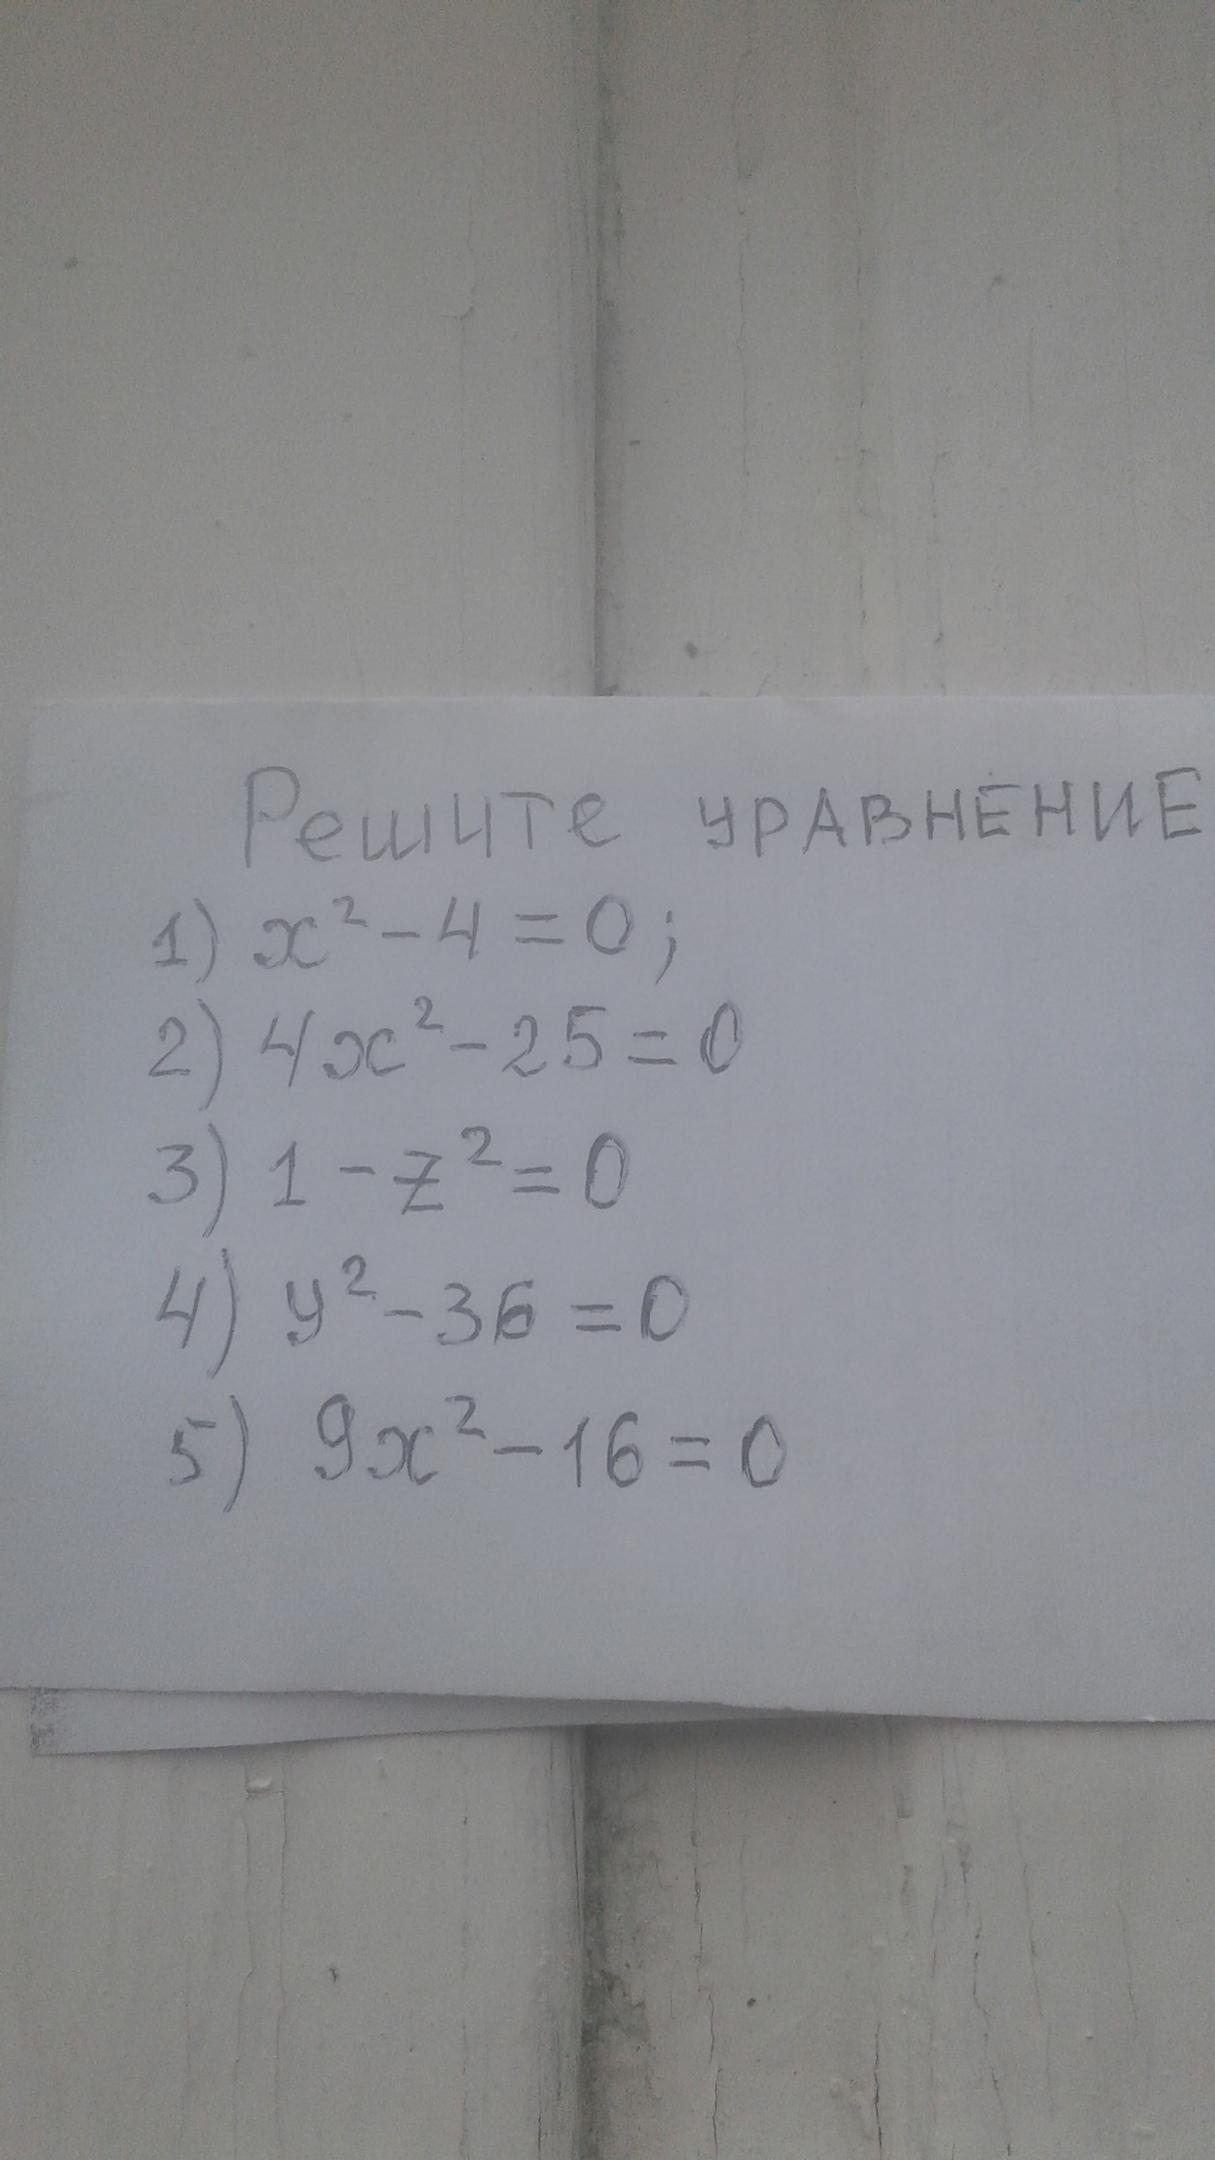 Решите УРАВНЕНИЕ
1) x² - 4 = 0;
2) 4x² - 25 = 0
3) 1 - z² = 0
4) y² - 36 = 0
5) 9x² - 16 = 0